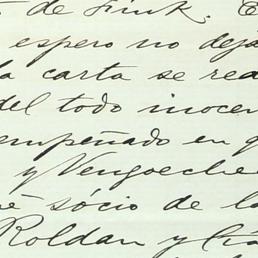 de Fink.
espero no dejá
la carta se rea
del todo inocen
empeñado en q
y Vengoeche
é sócio de la
Roldan y Cía